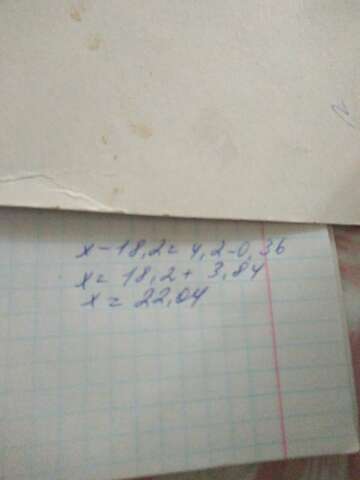 x-18,2=4,2-0,36
x=18,2+3,84
x=22,04